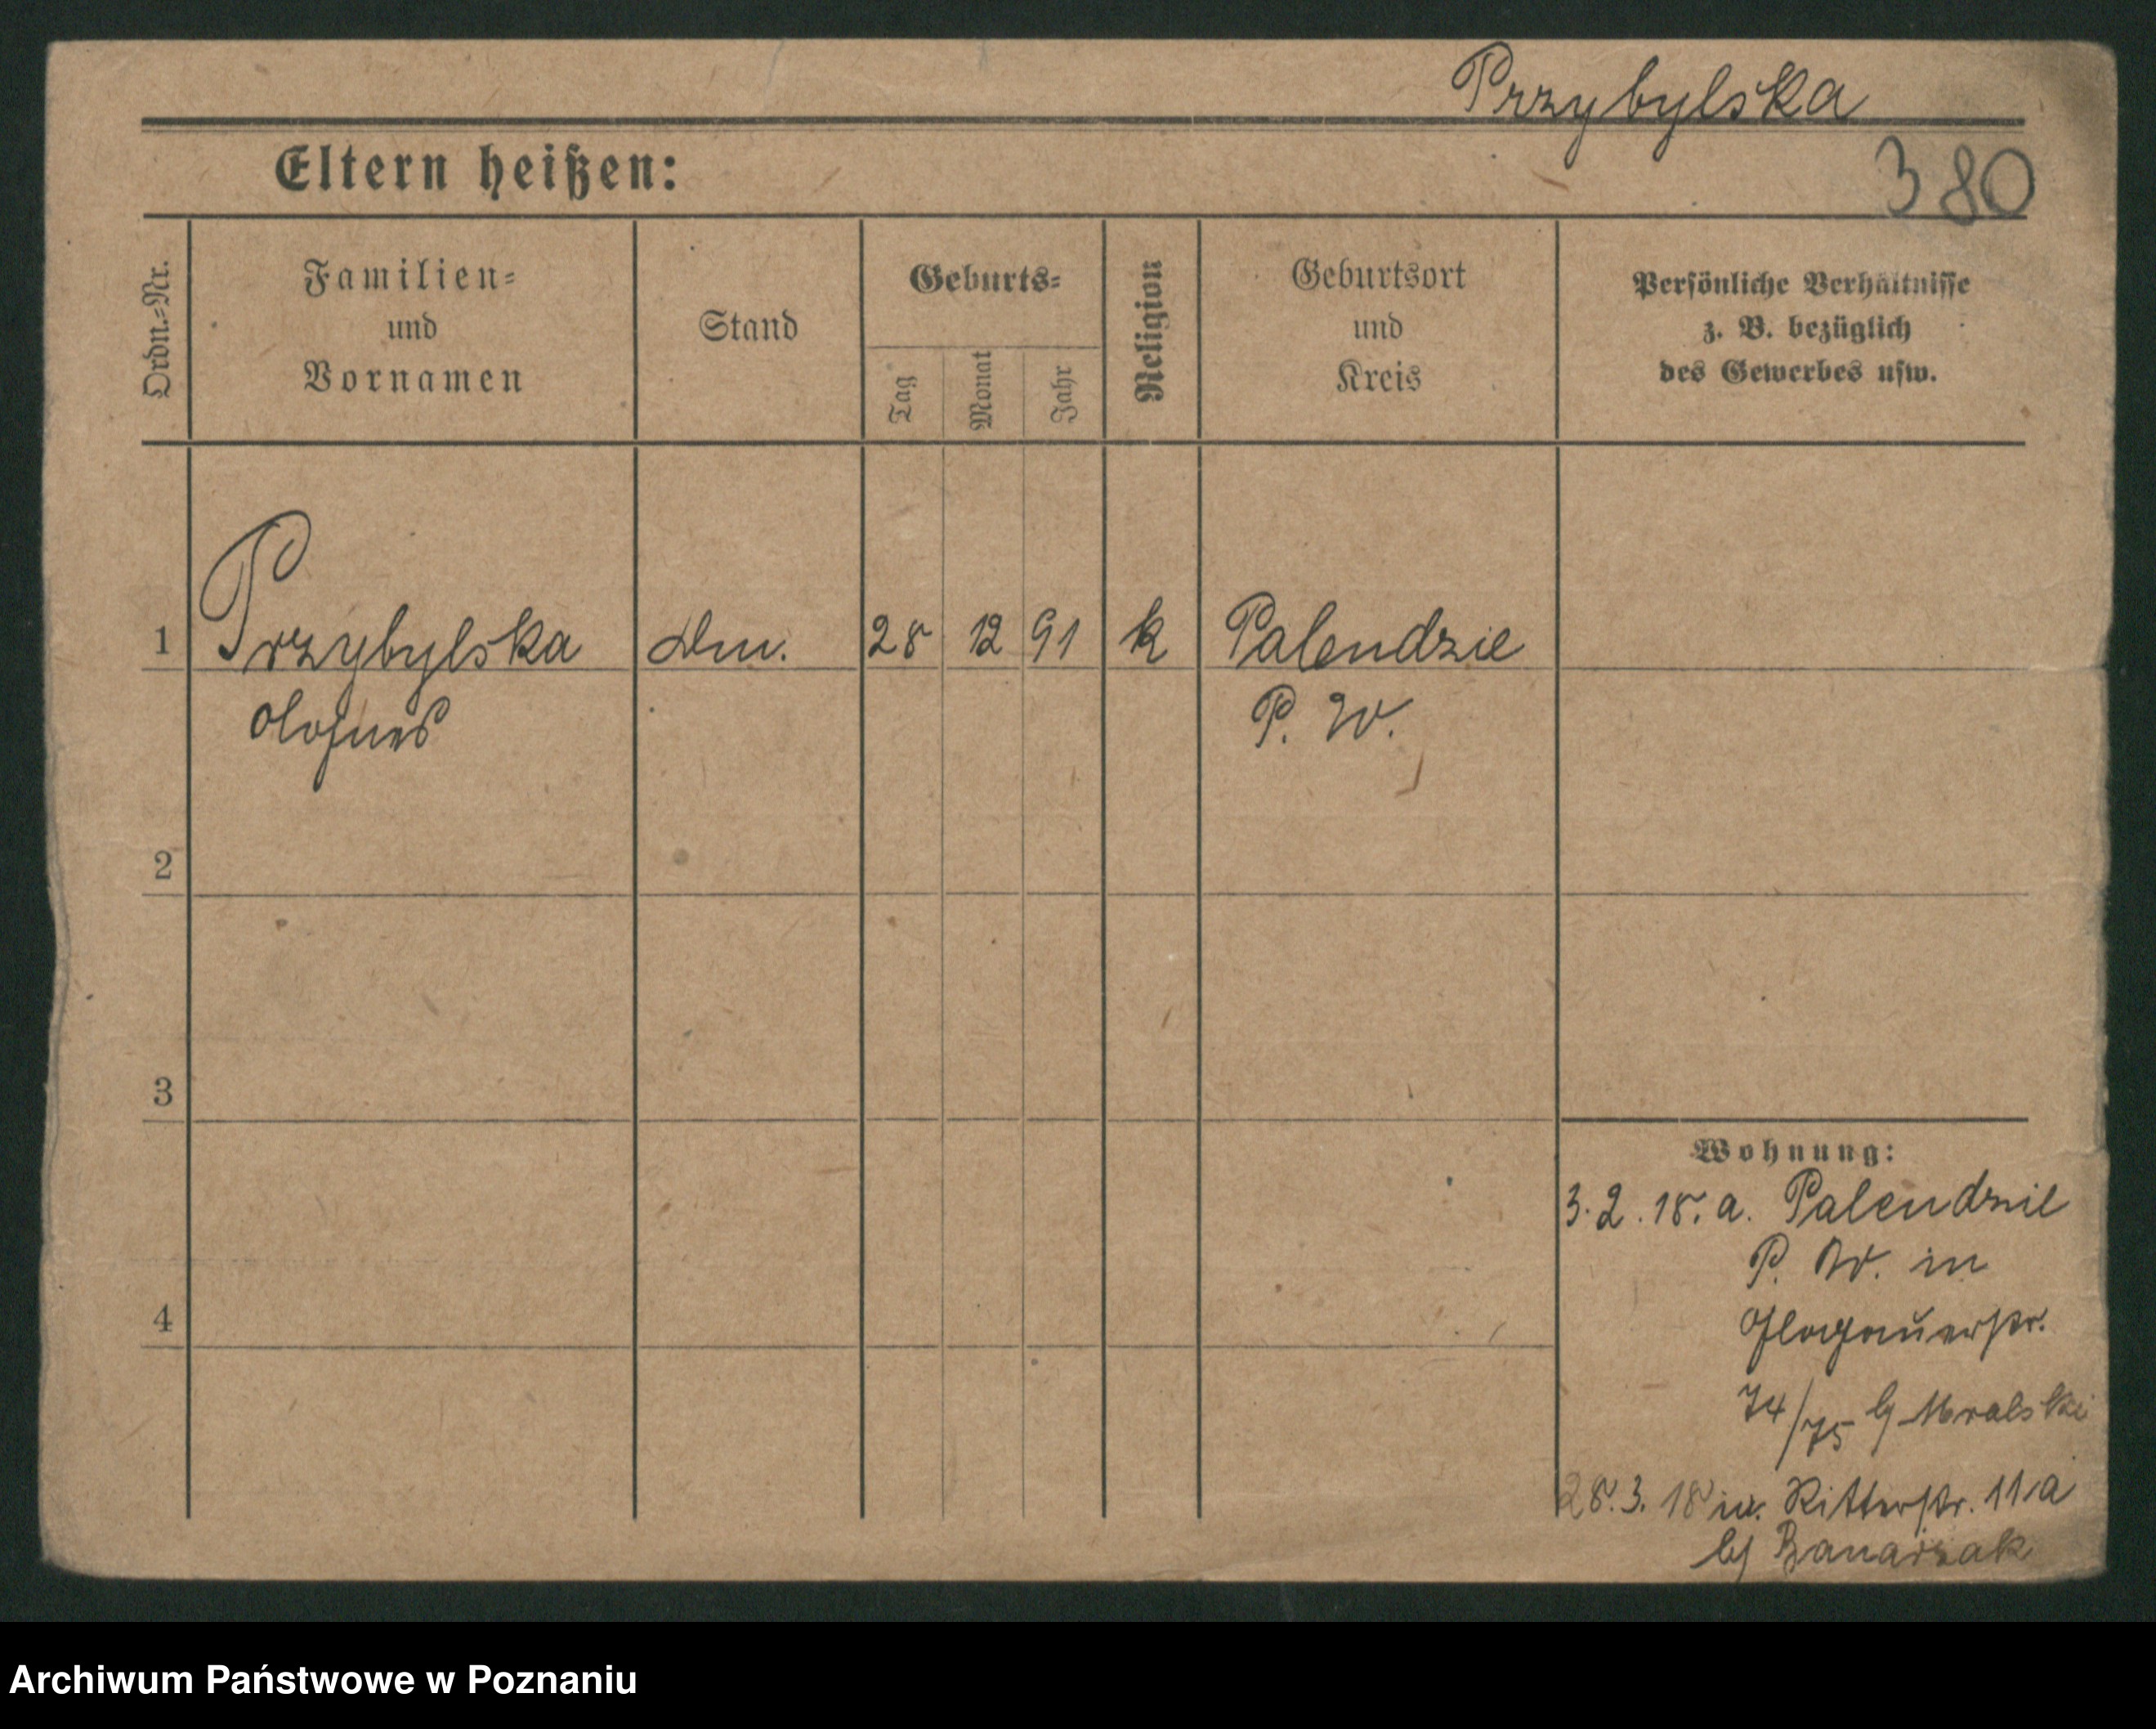 Przybylska
Eltern heißen:
380
Ordn.=Nr.
Familien=
und
Vornamen
Stand
Geburts=
Tag
Monat
Jahr
Religion
Geburtsort
und
Kreis
Persönliche Verhältnisse
z. B. bezüglich
des Gewerbes usw.
1
Przybylska
Agnes
28
12
91
k
Palendzie
P. W.
2
3
4
Wohnung:
3.2.18. a. Palendzie
P. W. in
Glogauerstr.
74/75
28.3.18 in. Ritterstr. 11a
Archiwum Państwowe w Poznaniu